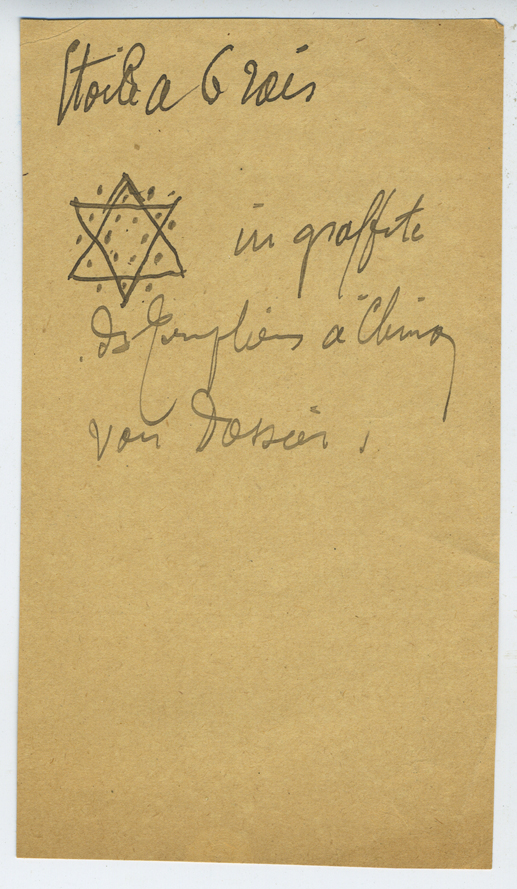 Etoile a 6 rais
in graffite
Ds Templiers a Chinon
voir Dossier